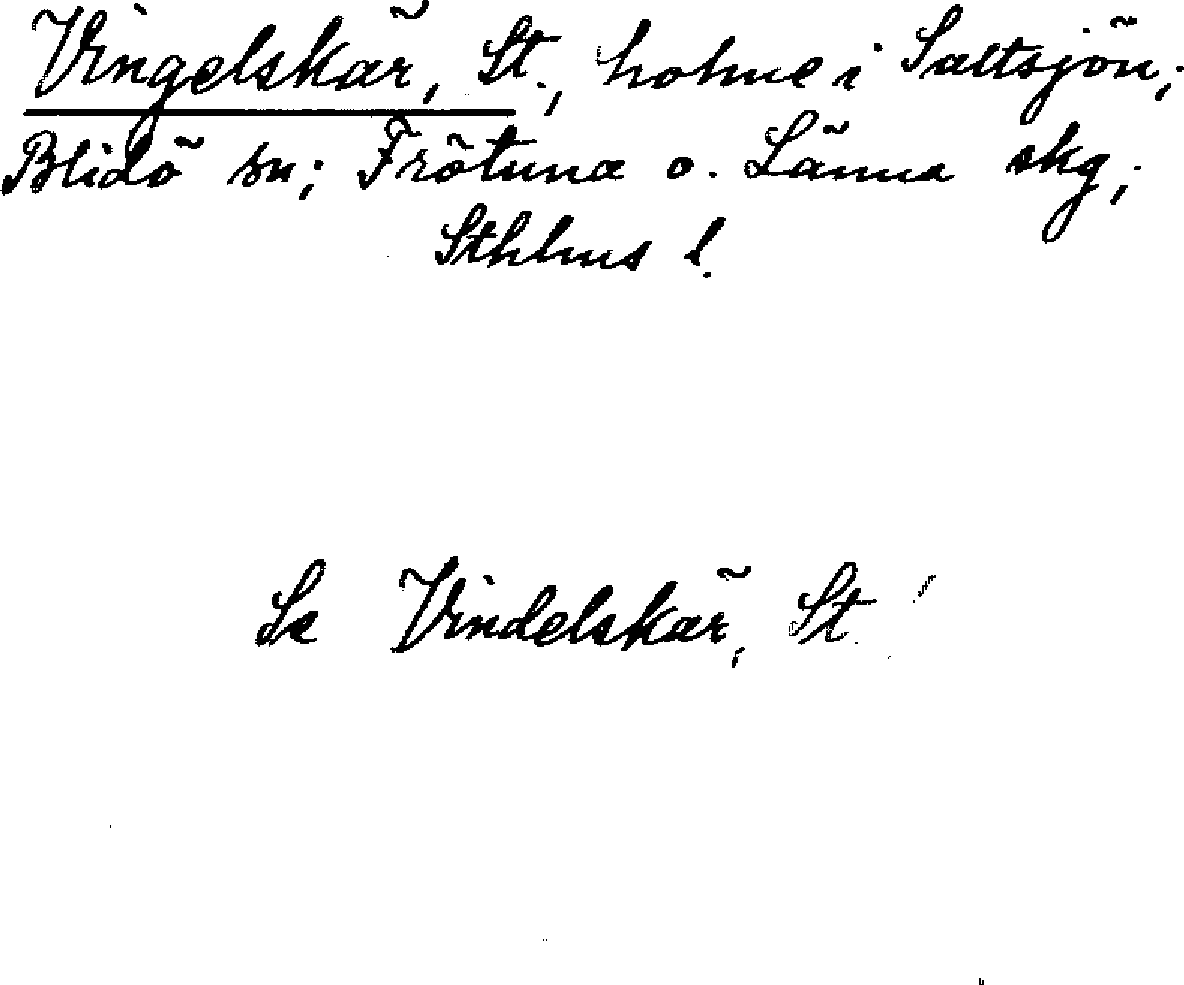 Vingelskär, St., holme i Saltsjön;
Blidö sn; Frötuna o. Länna skg;
Sthlms l.
Se Vindelskär, St!